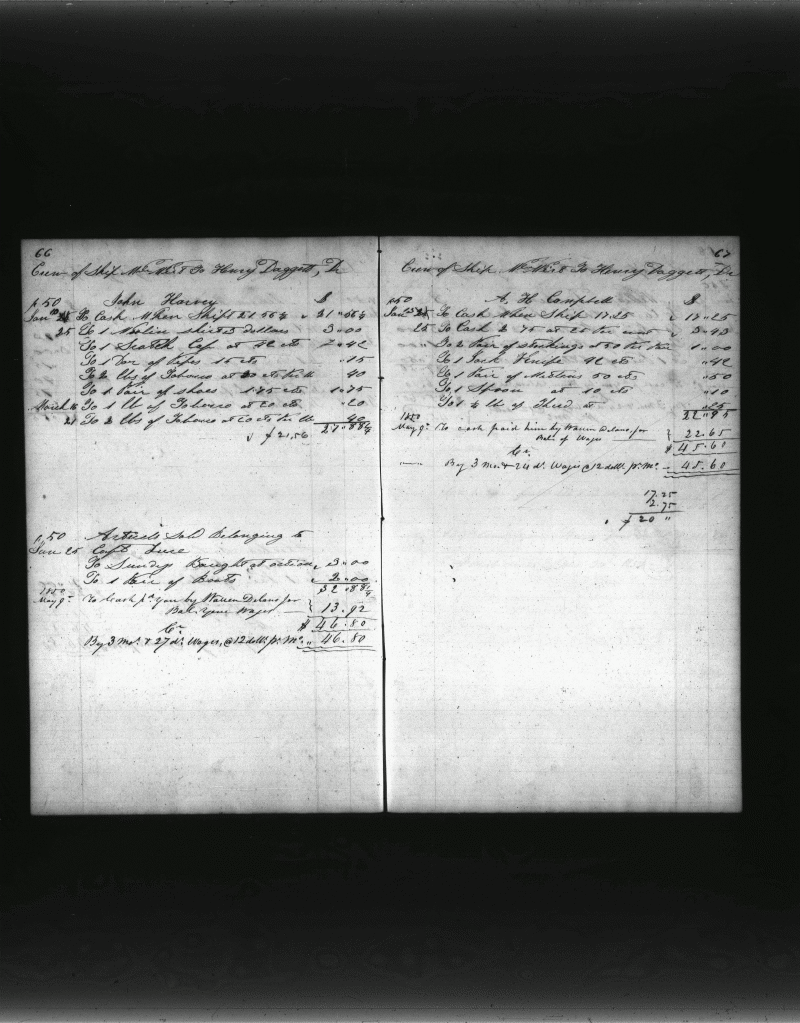 66
Crew of Ship To Henry Daggett, Dr
1850 John Harvey $
Jan 25 To Cash When Shipt 21.56¼ 21"56¼
25 To 1 shirt 3 dollars 3"00
To 1 Scotch Cap at 42 cts "42
To 1 Par of Pipes 15 cts "15
To 2 lbs of Tobacco at 20 cts the lb 40
To 1 Pair of shoes 1.75 cts 1"75
March 16 To 1 lb of Tobacco at 20 cts "20
21 To 2 lbs of Tobacco at 20 cts the lb 40
$ 21,56 27"88¼
1850 Articles Sold Belonging to
Jan 25 Capt Luce
To Sundys Bought at action 3"00
To 1 Pair of Boots 2"00
32"88¼
1850
May 9th To Cash pd. you by Warren Delano for
Bal. your Wages 13.92
Cr $ 46.80
By 3 mos. & 27 ds. Wages, @ 12 dolls. pr. Mo. " 46.80
67
Crew of Ship To Henry Daggett, Dr
1850 A. H. Campbell $
Jan To Cash When Ship 17.25 17"25
25 To Cash 2 75 at 25 the cent 3"43
To 2 Pair of stockings at 50 the Pair 1"00
To 1 Jack Knife 42 cts "42
To 1 Pair of Mittens 50 cts "50
To 1 Spoon at 10 cts "10
To 1 ¼ lb of Thred at "25
32"95
1850
May 9th To Cash paid him by Warren Delano for
Bal. of Wages 22.65
Cr $ 45.60
By 3 mos. & 24 ds. Wages @ 12 dolls. pr. Mo. 45.60
17.25
2.75
$ 20 "